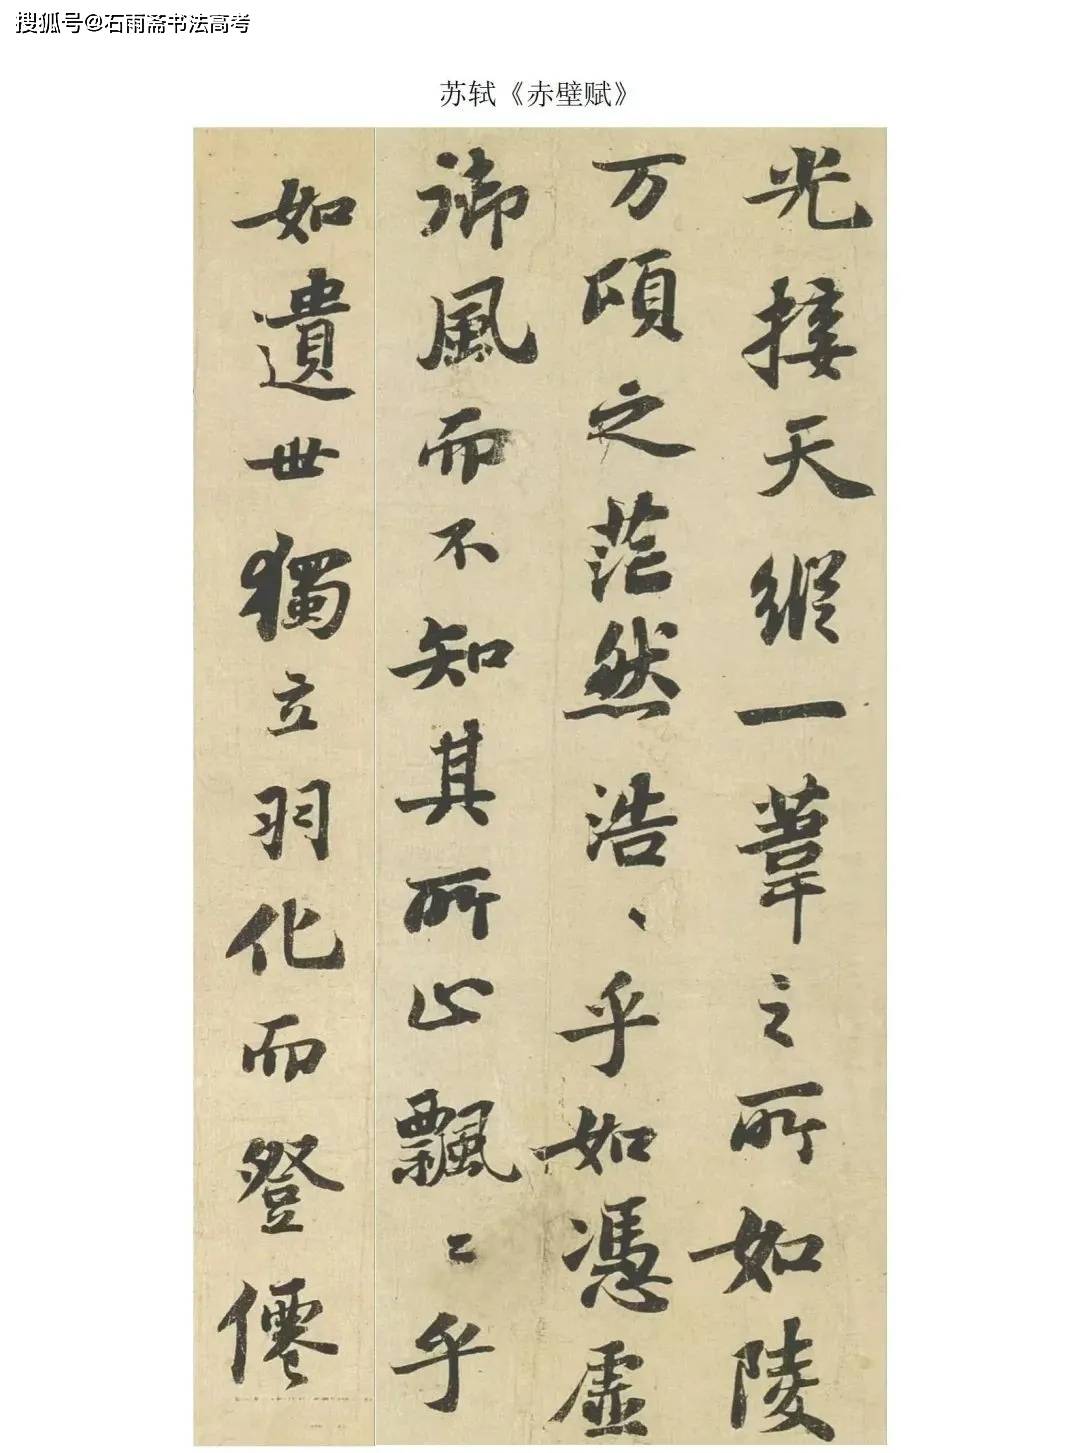 搜狐号@石雨斋书法高考
苏轼《赤壁赋》
光接天縱一葦之所如陵
万頃之茫然浩、乎如憑虛
御風而不知其所止飄〻乎
如遺世獨立羽化而登僊